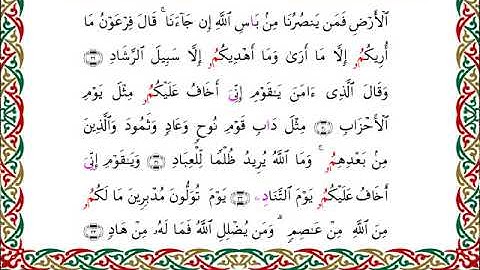 الْأَرْضِ فَمَن يَنصُرُنَا مِنۢ بَاسِ اللَّهِ إِن جَآءَنَا ۚ قَالَ فِرْعَوْنُ مَا
أُرِيكُمُۥ إِلَّا مَا أَرَىٰ وَمَا أَهْدِيكُمُۥ إِلَّا سَبِيلَ الرَّشَادِ
وَقَالَ الَّذِى ءَامَنَ يَـٰقَوْمِ إِنِّىَ أَخَافُ عَلَيْكُمُۥ مِثْلَ يَوْمِ
الْأَحْزَابِ مِثْلَ دَابِ قَوْمِ نُوحٍ وَعَادٍ وَثَمُودَ وَالَّذِينَ
مِنۢ بَعْدِهِمُۥ ۚ وَمَا اللَّهُ يُرِيدُ ظُلْمًا لِّلْعِبَادِ وَيَـٰقَوْمِ إِنِّىَ
أَخَافُ عَلَيْكُمُۥ يَوْمَ التَّنَادِۦ يَوْمَ تُوَلُّونَ مُدْبِرِينَ مَا لَكُمُۥ
مِنَ اللَّهِ مِنْ عَاصِمٍ ۗ وَمَن يُضْلِلِ اللَّهُ فَمَا لَهُۥ مِنْ هَادٍ